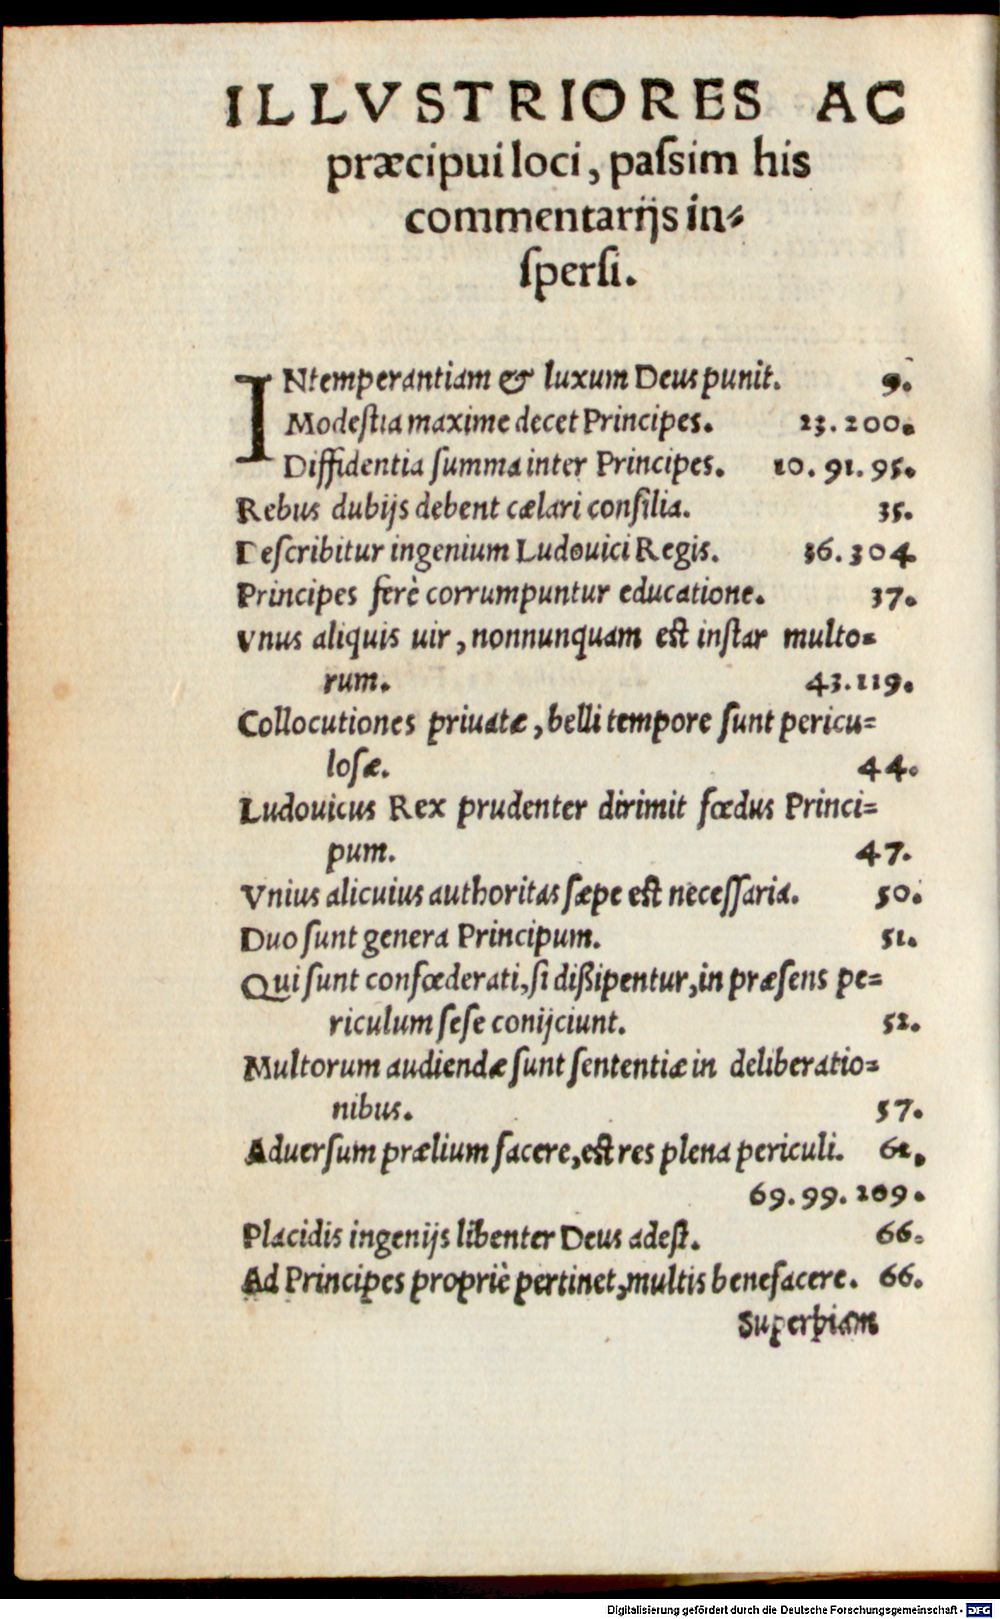 ILLVSTRIORES AC
præcipui loci, paſsim his
commentarijs in-
ſperſi.
INtemperantiam & luxum Deus punit. 9.
Modeſtia maxime decet Principes. 23.200.
Diffidentia ſumma inter Principes. 10.91.95.
Rebus dubijs debent cælari conſilia. 35.
Deſcribitur ingenium Ludouici Regis. 36.304
Principes ferè corrumpuntur educatione. 37.
Vnus aliquis uir, nonnunquam eſt inſtar multo=
rum. 43.119.
Collocutiones priuatæ, belli tempore ſunt pericu=
loſæ. 44.
Ludouicus Rex prudenter dirimit fœdus Princi=
pum. 47.
Vnius alicuius authoritas ſæpe eſt neceſſaria. 50.
Duo ſunt genera Principum. 51.
Qui ſunt confœderati, ſi dißipentur, in præſens pe=
riculum ſeſe conijciunt. 52.
Multorum audiendæ ſunt ſententiæ in deliberatio=
nibus. 57.
Aduerſum prælium facere, eſt res plena periculi.
69.99.209.
Placidis ingenijs libenter Deus adeſt. 66.
Ad Principes propriè pertinet, multis benefacere. 66.
Superbiam
Digitalisierung gefördert durch die Deutsche Forschungsgemeinschaft - DFG